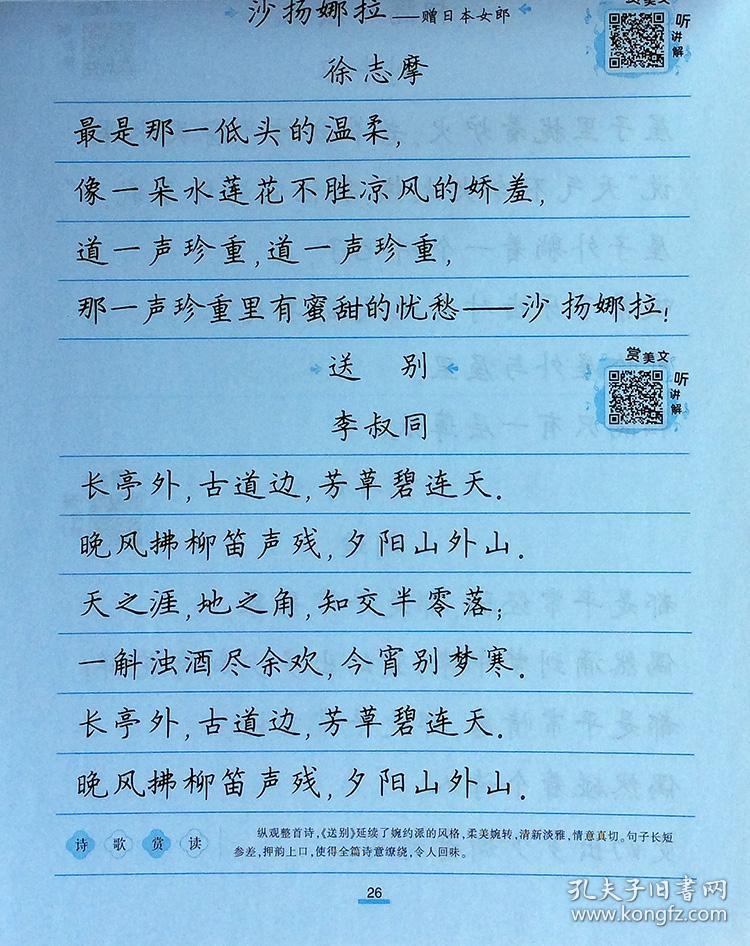 沙扬娜拉——赠日本女郎
赏美文
听讲解
徐志摩
最是那一低头的温柔,
像一朵水莲花不胜凉风的娇羞,
道一声珍重,道一声珍重,
那一声珍重里有蜜甜的忧愁——沙扬娜拉!
送 别
赏美文
听讲解
李叔同
长亭外,古道边,芳草碧连天.
晚风拂柳笛声残,夕阳山外山.
天之涯,地之角,知交半零落;
一斛浊酒尽余欢,今宵别梦寒.
长亭外,古道边,芳草碧连天.
晚风拂柳笛声残,夕阳山外山.
诗歌赏读
纵观整首诗,《送别》延续了婉约派的风格,柔美婉转,清新淡雅,情意真切。句子长短
参差,押韵上口,使得全篇诗意缭绕,令人回味。
26
孔夫子旧书网
www.kongfz.com